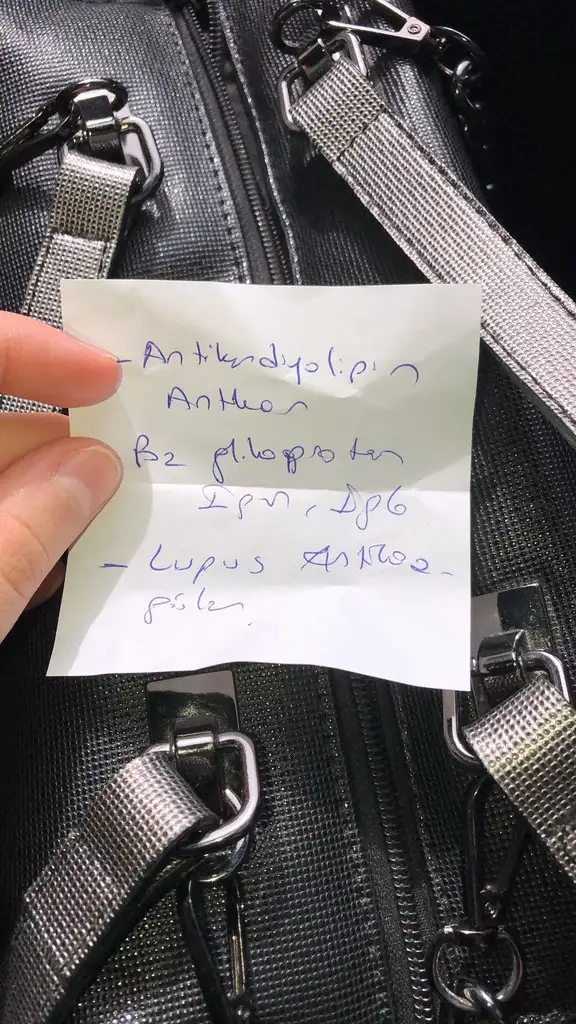 - Antikardiyolipin
Antikor
B2 glikoprotein
IgM, IgG
- Lupus Antikoa-
gülan